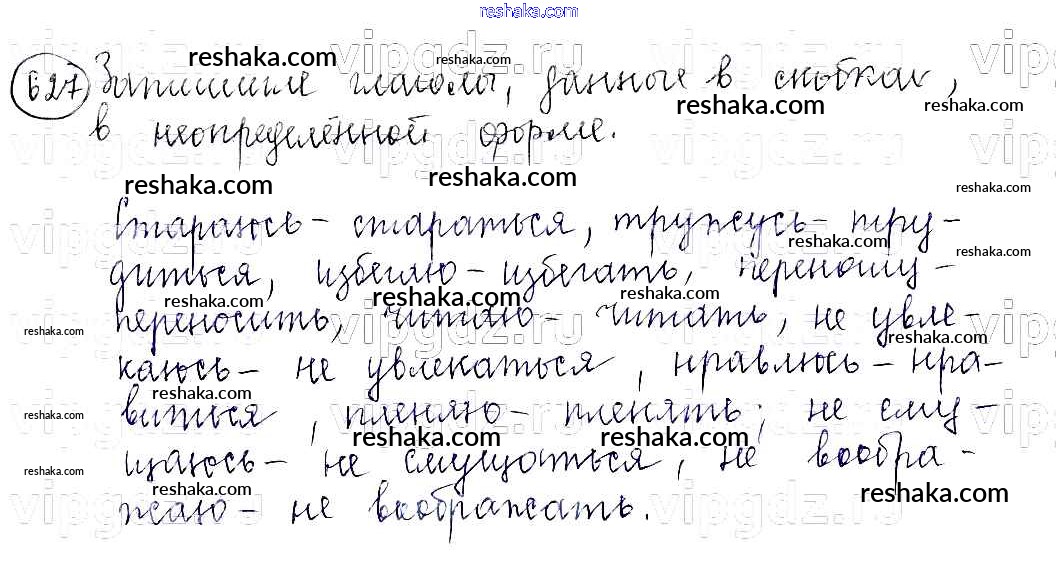 reshaka.com
627 Запишите глаголы, данные в скобках,
в неопределённой форме.
Стараюсь - стараться, тружусь - тру-
диться, избегаю - избегать, переношу -
переносить, читаю - читать, не увле-
каюсь - не увлекаться, нравлюсь - нра-
виться, пленяю - пленять, не сму-
щаюсь - не смущаться, не вообра-
жаю - не воображать.